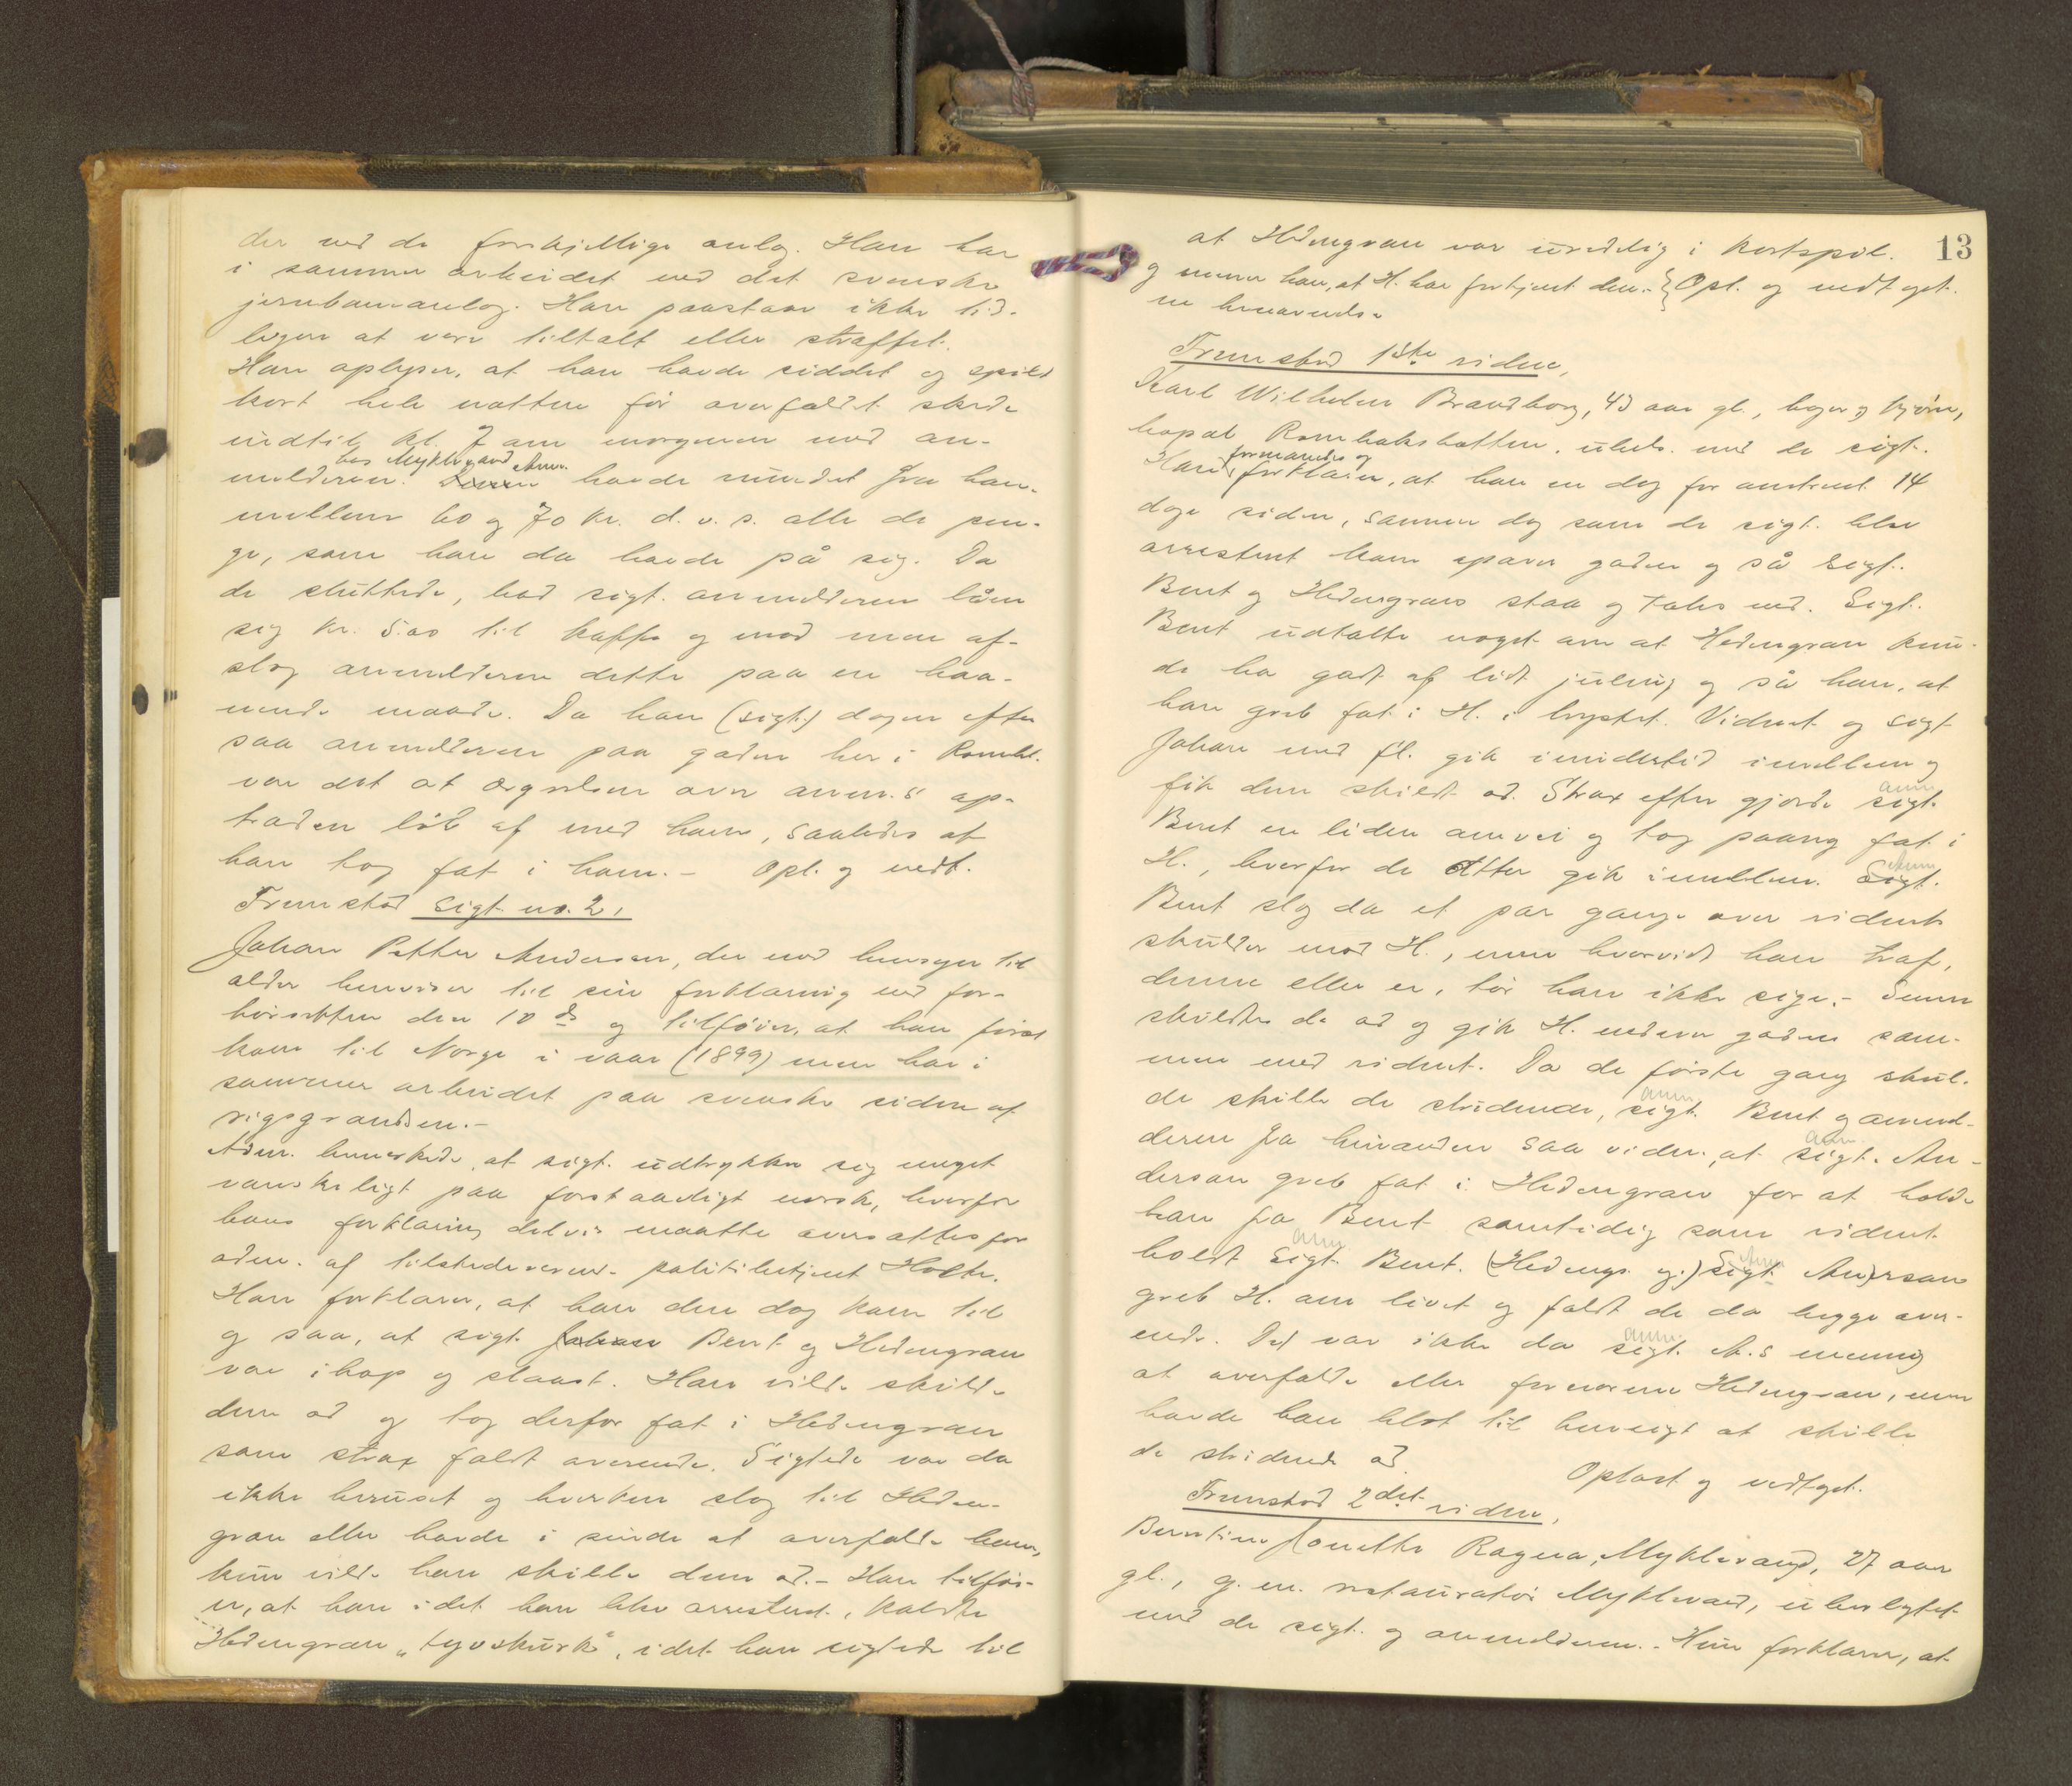 der ved de forskjellige anlæg. Han har
i sommer arbeidet ved det svenske
jernbaneanlæg. Han paastaar ikke tid-
ligere at være tiltalt eller straffet.
Han oplyser, at han havde siddet og spilt
kort hele natten før overfaldet skede
indtil kl. 7 om morgenen med an-
hos Myklevand Anm.
melderen. Denne havde vundet fra ham
mellem 60 og 70 kr. d. v. s. alle de pen-
ge, som han da havde på sig. Da
de sluttede, bad sigt. anmelderen låne
sig kr. 5.00 til kaffe og mad men af-
slog anmelderen dette paa en haa-
nende maade. Da han (sigt.) dagen efter
saa anmelderen paa gaden her i Rombk.
var det at ærgrelsen over anm.s op-
træden løb af med ham, saaledes at
han tog fat i ham. – Opl. og vedt.
Fremstod sigt no. 2,
Johan Petter Andersson, der med hensyn til
alder henviser til sin forklaring ved for-
hørsretten den 10 ds og tilføier, at han først
kom til Norge i vaar (1899) men har i
sommer arbeidet paa svenske siden af
rigsgrændsen. –
Adm. bemærkede, at sigt. udtrykker sig meget
vanskeligt paa forstaaeligt norsk, hvorfor
hans forklaring delvis maatte oversættes for
adm. af tilstedeværend. politibetjent Holte.
Han forklarer, at han den dag kom til
og saa, at sigt. Johan Bent og Hedengran
var ihop og sloasst. Han vilde skille
dem ad og tog derfor fat i Hedengran
som strax faldt overende. Sigtede var da
ikke beruset og hverken slog til Heden-
gran eller havde i sinde at overfalde ham,
kun vilde han skille dem ad. – Han tilføi-
er, at han idet han blev arresteret, kaldte
Hedengran "tyvskurk", idet han sigtede til
13
at Hedengran var uredelig i kortspil.
og mener han, at H. har fortjent den- } Opl. og vedtaget.
ne benævnelse
Fremstod 1ste vidne,
Karl Wilhelm Brandborg, 43 aar gl., bager og kjørm,
bopæl Rombaksbotten. ubesl. med de sigt.
formanedes og
Han forklarer, at han en dag for omtrent 14
dage siden, samme dag som de sigt. blev
arresteret kom opover gaden og så Sigt.
Bent og Hedengran staa og tales ved. Sigt.
Bent udtalte noget om at Hedengran kun-
de ha godt af lidt juling og så han, at
han greb fat i H. i brystet. Vidnet og sigt
Johan med fl. gik imidlertid imellem og
anm
fik dem skilt ad. Strax efter gjorde sigt.
Bent en liden omvei og tog paany fat i
Anm
H., hvorfor de atter gik imellem. Sigt.
Bent slog da et par gange over vidnets
skulder mod H., men hvorvidt han traf,
denne eller ei, tør han ikke sige. – Senere
skildtes de ad og gik H. nedover gaden sam-
men med vidnet. Da de første gang skul-
anm
de skille de stridende, sigt. Bent og anmel-
anm.
deren fra hinanden saa vidn., at sigt. An-
dersson greb fat i Hedengran for at holde
ham fra Bent samtidig som vidnet
anm Anm
holdt sigt. Bent. (Hedengr. og) sigt. Andersson
greb H. om livet og faldt de da begge over-
anm.
ende. Det var ikke da sigt. A.s mening
at overfalde eller fornærme Hedengran, men
havde han blot til hensigt at skille
de stridende ad.
Oplæst og vedtaget.
Fremstod 2det vidne,
Berntine Jonette Ragna, Myklevand, 27 aar
gl., g. m. restauratør Myklevand, ubeslægtet
med de sigt. og anmelderen. – Hun forklarer, at